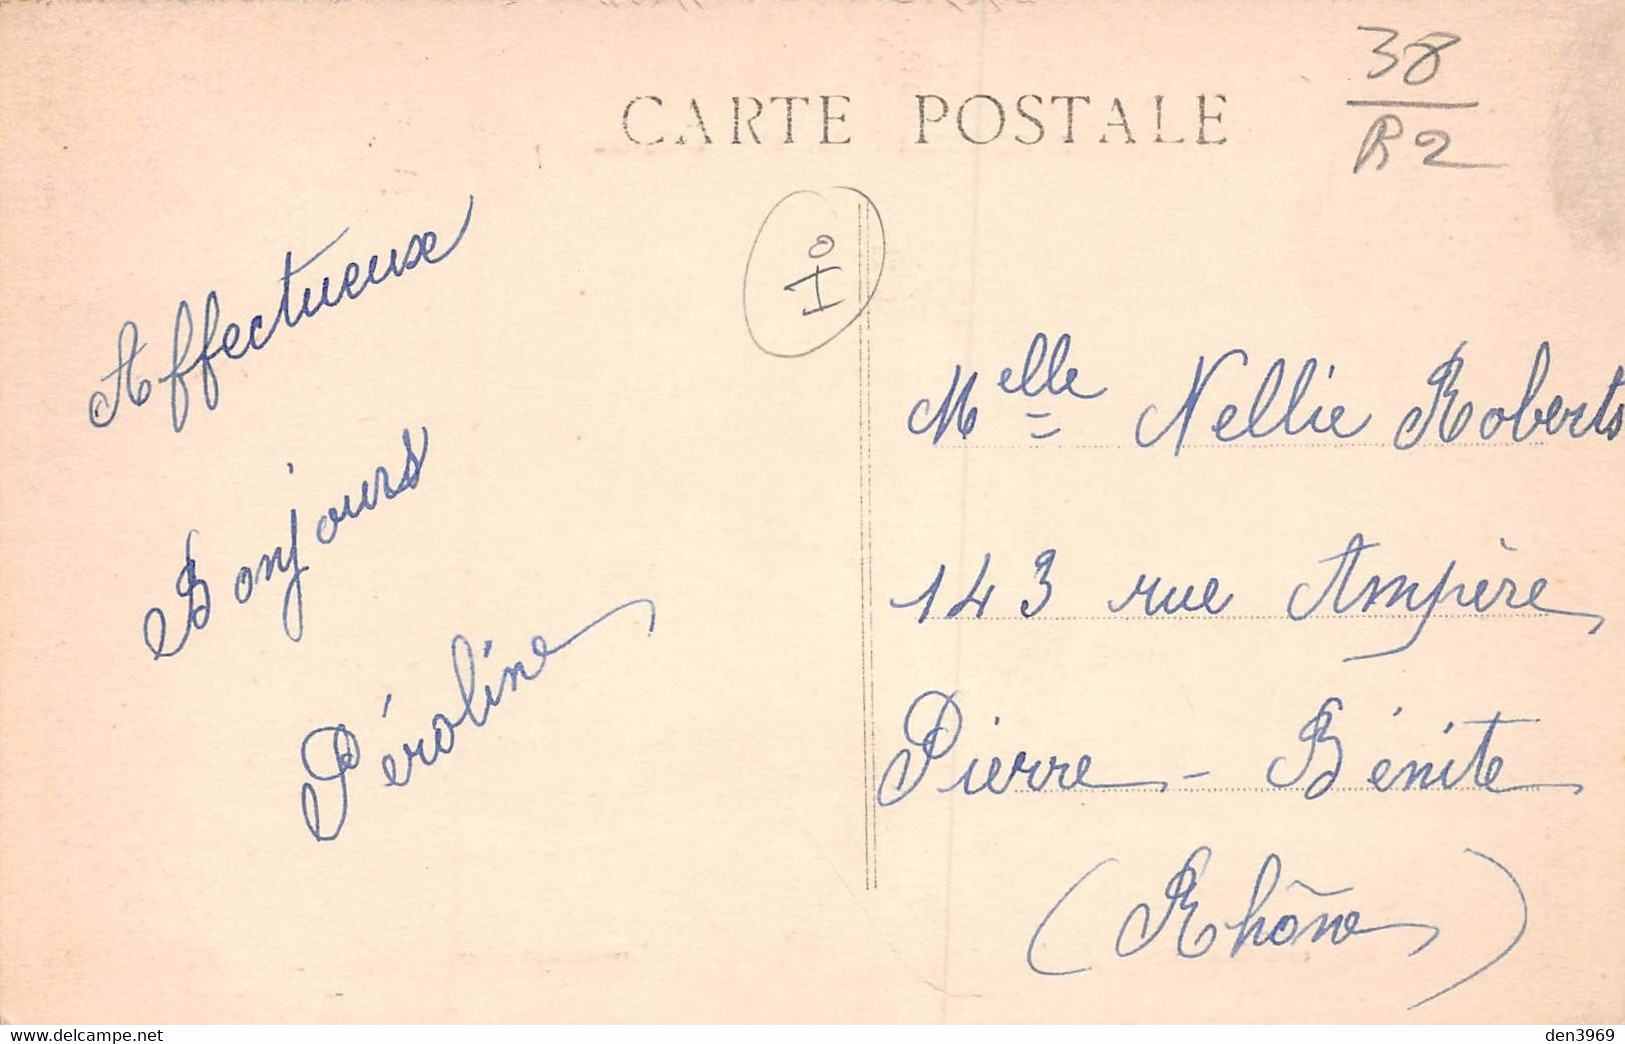 CARTE POSTALE
38
R2
Affectueux
Bonjours
Péroline
Melle Nellie Roberts
143 rue Ampère
Pierre-Bénite
(Rhône)
https://www.delcampe.net
den3969